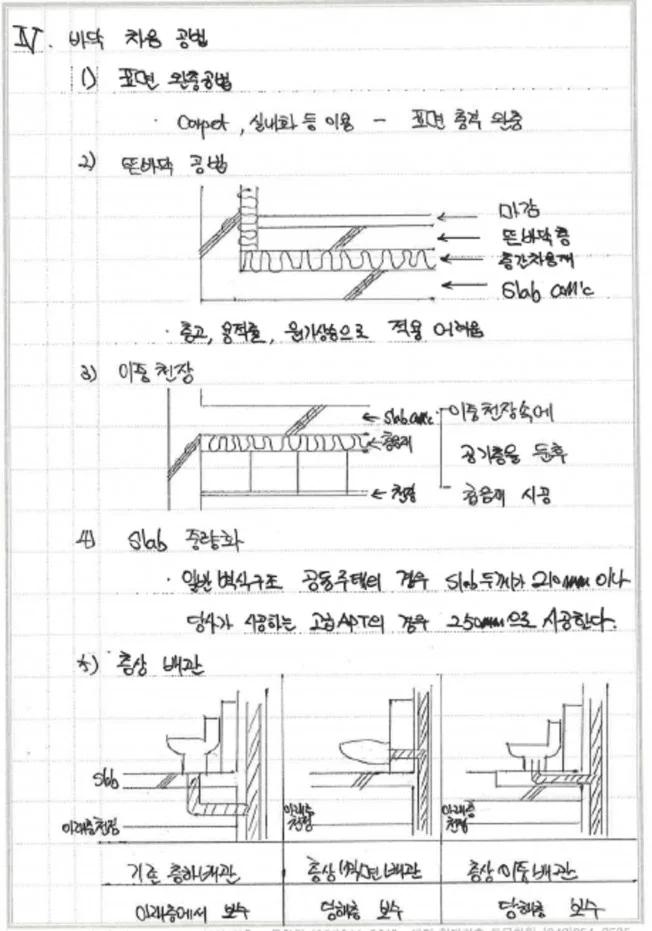 IV. 바닥 차음 공법
1) 표면 완충공법
· Carpet, 실내화 등 이용 - 표면 충격 완충
2) 뜬바닥 공법
← 마감
← 뜬바닥층
← 층간차음재
← Slab con'c
· 층고, 용적률, 원가상승으로 적용 어려움
3) 이중천장
← Slab con'c
← 흡음재
← 천장
이중천장속에
공기층을 둔후
흡음재 시공
4) Slab 중량화
· 일반 벽식구조 공동주택의 경우 Slab 두께가 210mm 이나
당사가 시공하는 고급APT의 경우 250mm으로 시공한다.
5) 층상 배관
Slab
아래층천정
아래층
천정
아래층
천정
기존 층하배관 층상 벽면배관 층상 이중배관
아래층에서 보수 당해층 보수 당해층 보수